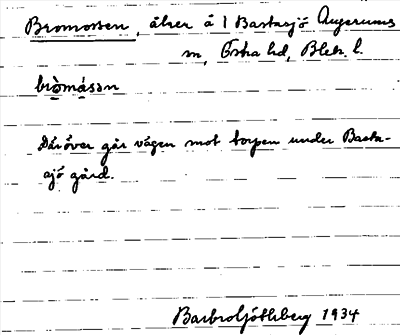 Bromossen, åker å 1 Bastasjö Augerums
sn, Östra hd, Blek. l.
bròmásən
Däröver går vägen mot torpen under Basta-
sjö gård.
Barbro Götlberg 1934